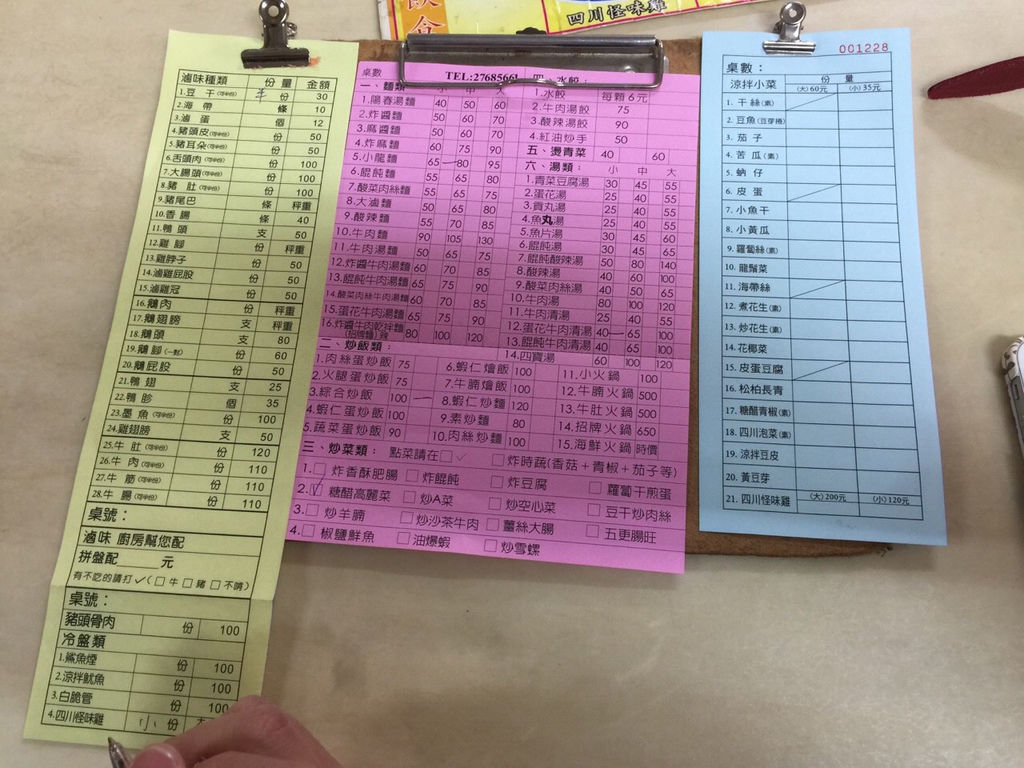 飲食
四川怪味雞
滷味種類 份量 金額
1.豆干(可半份) 半份 30
2.海帶 條 10
3.滷蛋 個 12
4.豬頭皮(可半份) 份 50
5.豬耳朵(可半份) 份 50
6.舌頭肉(可半份) 份 100
7.大腸頭(可半份) 份 100
8.豬肚(可半份) 份 100
9.豬尾巴 條 秤重
10.香腸 條 40
11.鴨頭 支 50
12.雞腳 份 秤重
13.雞脖子 份 50
14.滷雞屁股 份 50
15.滷雞冠 份 50
16.鵝肉 份 秤重
17.鵝翅膀 支 秤重
18.鵝頭 支 80
19.鵝腳(一對) 份 60
20.鵝屁股 份 50
21.鴨翅 支 25
22.鴨胗 個 35
23.墨魚(可半份) 份 100
24.雞翅膀 支 50
25.牛肚(可半份) 份 120
26.牛肉(可半份) 份 110
27.牛筋(可半份) 份 110
28.牛腸(可半份) 份 110
桌號：
滷味 廚房幫您配
拼盤配 元
有不吃的請打✓(□牛□豬□不辣)
桌號：
豬頭骨肉 份 100
冷盤類
1.鯊魚煙 份 100
2.涼拌魷魚 份 100
3.白脆管 份 100
4.四川怪味雞 小 份
桌數 TEL:2768566
一、麵類 小 中 大
1.陽春湯麵 40 50 60
2.炸醬麵 50 60 70
3.麻醬麵 50 60 70
4.炸麻麵 60 75 90
5.小龍麵 65 80 95
6.餛飩麵 55 65 80
7.酸菜肉絲麵 55 65 75
8.大滷麵 50 65 80
9.酸辣麵 55 70 80
10.牛肉麵 90 105 130
11.牛肉湯麵 50 65 75
12.炸醬牛肉湯麵 60 70 85
13.餛飩牛肉湯麵 60 75 85
14.酸菜肉絲牛肉湯麵 60 70 85
15.蛋花牛肉湯麵 65 75 90
16.炸醬牛肉乾拌麵(招牌麵)辣 80 100 120
四、水餃：
1.水餃 每顆6元
2.牛肉湯餃 75
3.酸辣湯餃 90
4.紅油炒手 50
五、燙青菜 40 60
六、湯類： 小 中 大
1.青菜豆腐湯 30 45 55
2.蛋花湯 25 40 55
3.貢丸湯 25 40 55
4.魚丸湯 25 40 55
5.魚片湯 30 45 60
6.餛飩湯 30 45 65
7.餛飩酸辣湯 50 80 140
8.酸辣湯 40 60 100
9.酸菜肉絲湯 40 50 65
10.牛肉湯 80 100 120
11.牛肉清湯 40 50 65
12.蛋花牛肉清湯 40 65 100
13.餛飩牛肉清湯 40 65 100
14.四寶湯 60 100 120
二、炒飯類：
1.肉絲蛋炒飯 75
2.火腿蛋炒飯 75
3.綜合炒飯 100
4.蝦仁蛋炒飯 100
5.蔬菜蛋炒飯 90
6.蝦仁燴飯 100
7.牛腩燴飯 100
8.蝦仁炒麵 120
9.素炒麵 80
10.肉絲炒麵 100
11.小火鍋 100
12.牛腩火鍋 500
13.牛肚火鍋 500
14.招牌火鍋 650
15.海鮮火鍋 時價
三、炒菜類： 點菜請在□✓ □炸時蔬(香菇+青椒+茄子等)
1.□炸香酥肥腸 □炸餛飩 □炸豆腐 □蘿蔔干煎蛋
2.☑糖醋高麗菜 □炒A菜 □炒空心菜 □豆干炒肉絲
3.□炒羊腩 □炒沙茶牛肉 □薑絲大腸 □五更腸旺
4.□椒鹽鮮魚 □油爆蝦 □炒雪螺
001228
桌數：
涼拌小菜 份量 (大)60元 (小)35元
1. 干絲(素)
2. 豆魚(豆芽捲)
3. 茄子
4. 苦瓜(素)
5. 蚋仔
6. 皮蛋
7. 小魚干
8. 小黃瓜
9. 蘿蔔絲(素)
10. 龍鬚菜
11. 海帶絲
12. 煮花生(素)
13. 炒花生(素)
14. 花椰菜
15. 皮蛋豆腐
16. 松柏長青
17. 糖醋青椒(素)
18. 四川泡菜(素)
19. 涼拌豆皮
20. 黃豆芽
21. 四川怪味雞 (大)200元 (小)120元